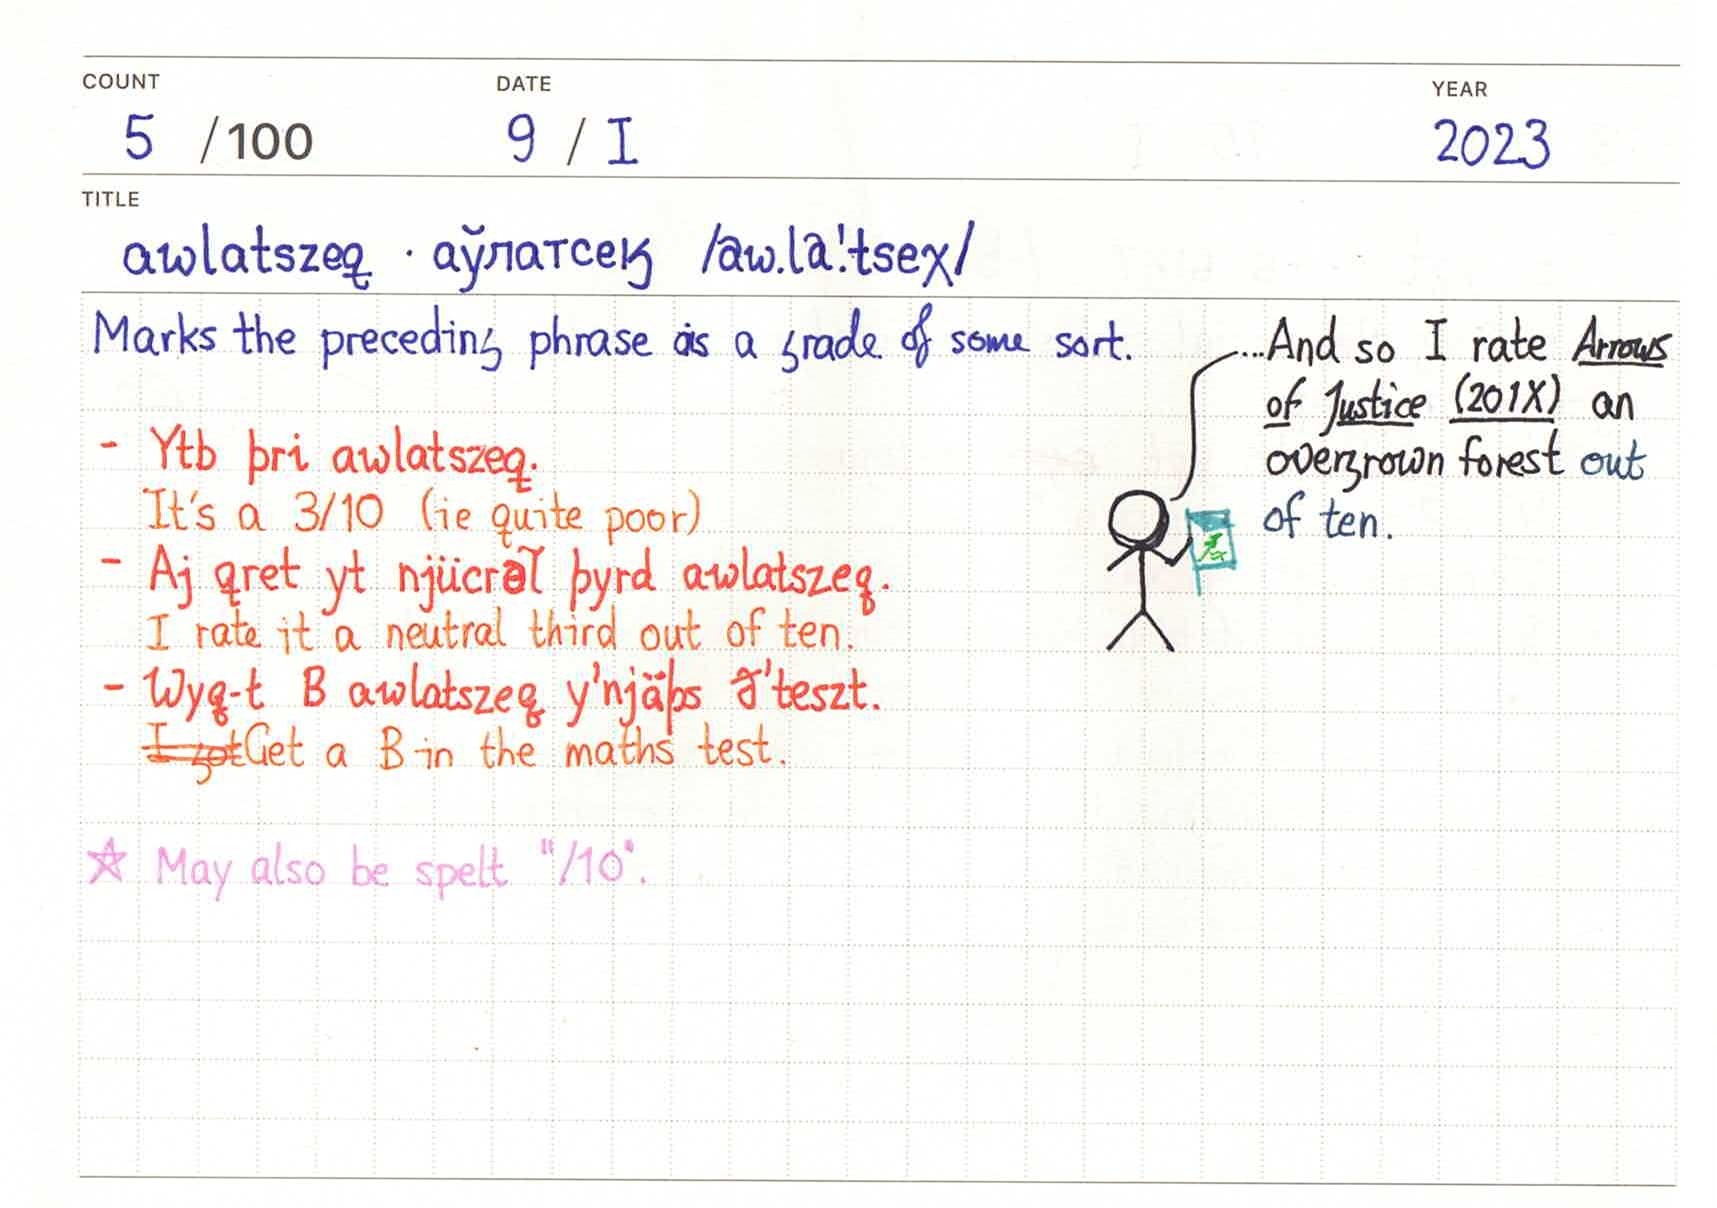 COUNT DATE YEAR
5 /100 9 / I 2023
TITLE
awlatszeq · аўлатсек /aw.la.'tseχ/
Marks the preceding phrase as a grade of some sort.
- Ytb þri awlatszeq.
It's a 3/10 (ie quite poor)
- Aj qret yt njücrəl̃ þyrd awlatszeq.
I rate it a neutral third out of ten.
- Wyq-t B awlatszeq y'njäþs ə̃'teszt.
I got Get a B in the maths test.
☆ May also be spelt "/10".
...And so I rate Arrows
of Justice (201X) an
overgrown forest out
of ten.